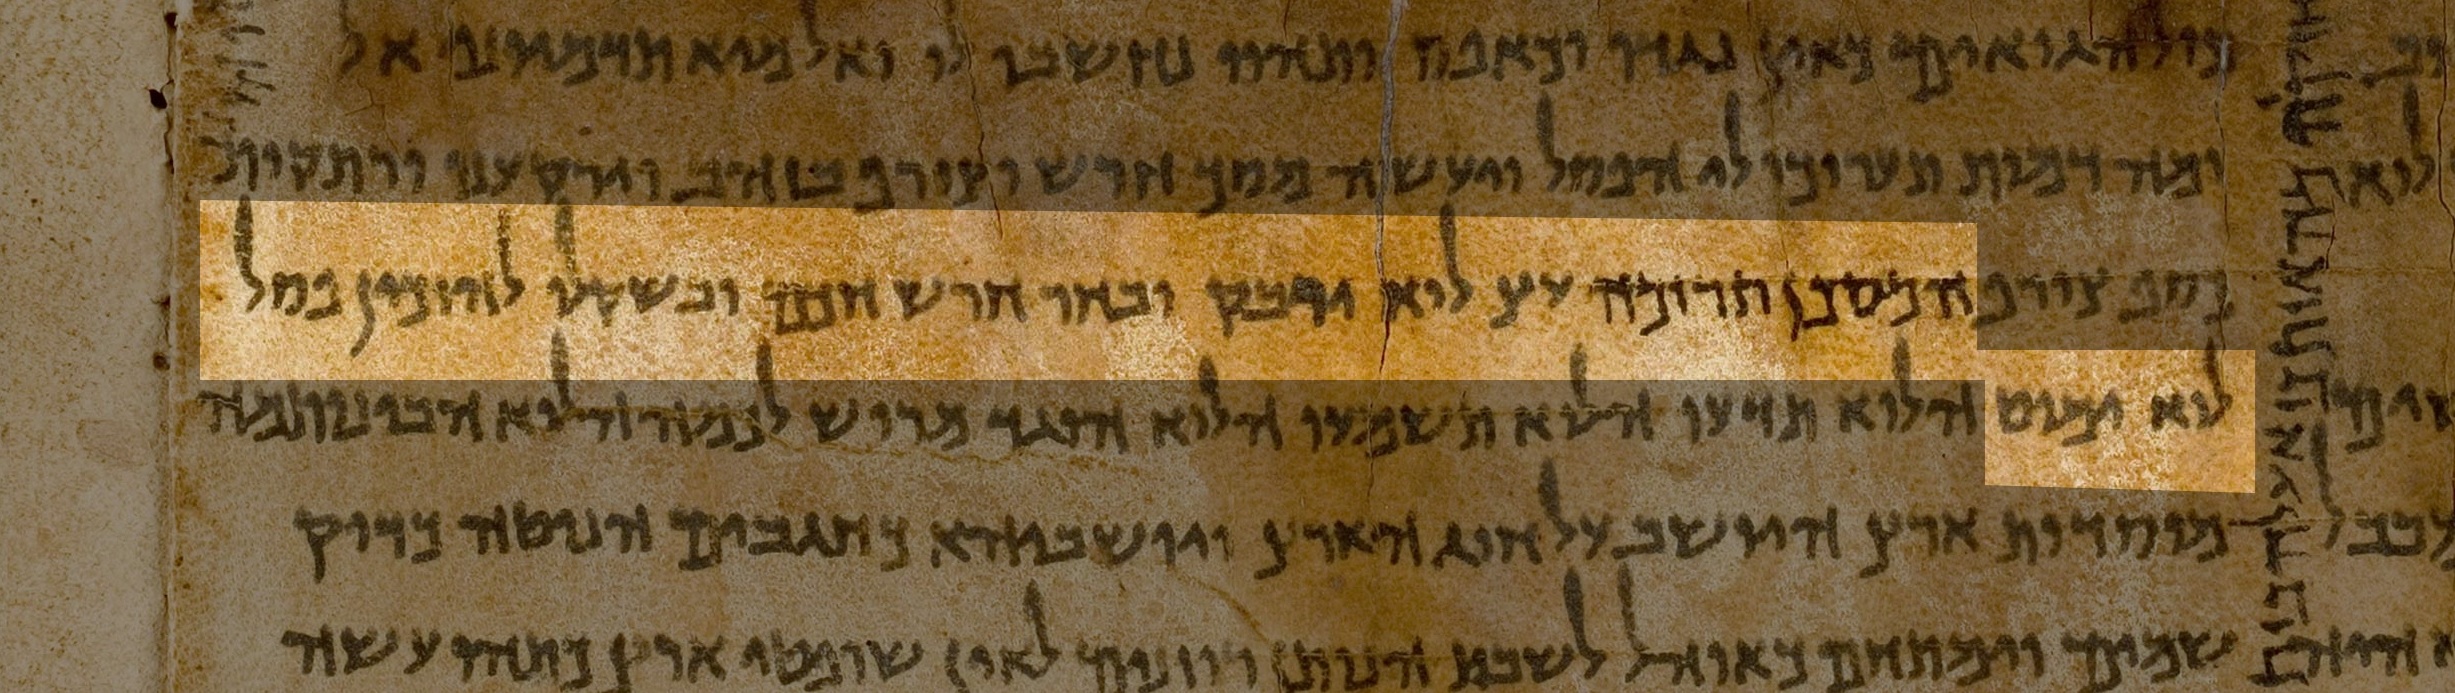 כול הגואים כאין נגדו וכאפס ותהוו נחשבו לו ואל מיא תדמיוני אל
ומה דמות תערוכו לי הפסל ויעשה מסך חרש וצורף בזהב וירקענו ורתקות
כסף צורף המסכן תרומה עץ לוא ירקב יבחר חרש חכם ובקש לו להכין פסל
לוא ימוט הלוא תדעו הלוא תשמעו הלוא הוגד מרוש לכמה הלוא הבינותמה
מוסדות ארץ היושב על חוג הארץ ויושביהא כחגבים הנוטה כדוק
שמים וימתחם כאוהל לשבת הנותן רוזנים לאין שופטי ארץ כתהו עשה